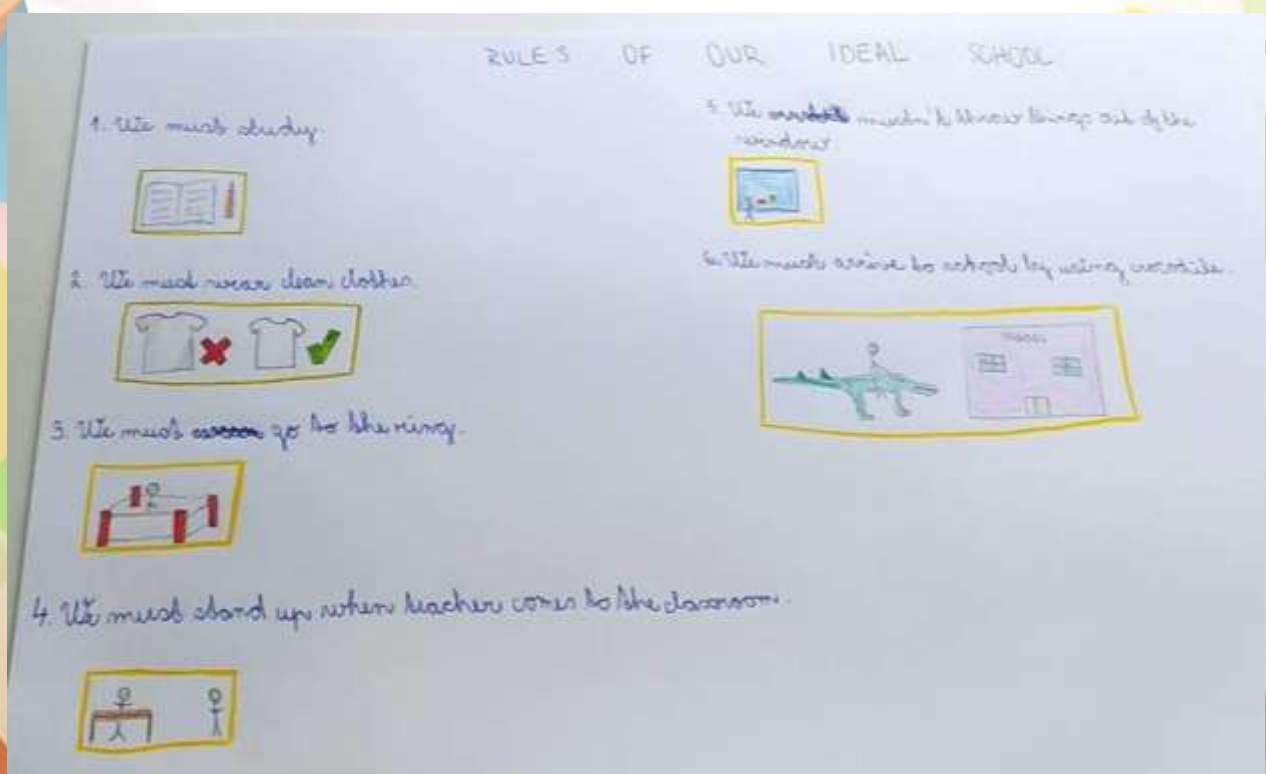 RULES OF OUR IDEAL SCHOOL
1. We must study.
2. We must wear clean clothes.
3. We must go to the ring.
4. We must stand up when teacher comes to the classroom.
5. We mustn't throw things out of the
window.
6. We must arrive to school by using crocodile.